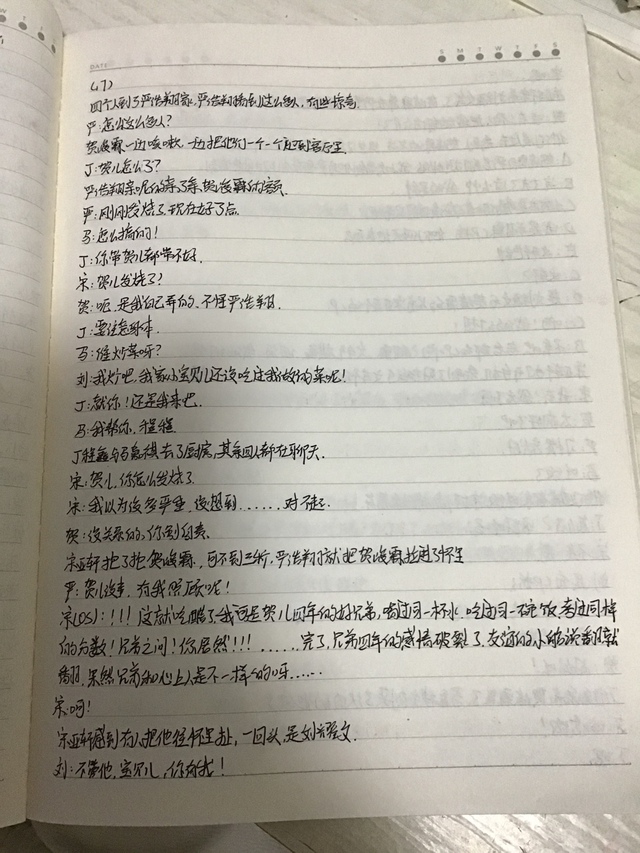 DATE
S M T W T F S
(47)
四个人到了严浩翔家,严浩翔看到这么多人,有些惊奇
严:怎么这么多人?
贺峻霖一边咳嗽,一边把他们一个一个迎到客厅里.
丁:贺儿怎么了?
严浩翔亲昵的亲了亲贺峻霖的额头
严:刚刚发烧了,现在好了点.
马:怎么搞的!
丁:你带贺儿都带不好.
宋:贺儿发烧了?
贺:呃,是我自己弄的,不怪严浩翔.
丁:要注意身体.
马:谁炒菜呀?
刘:我炒吧,我家小宝贝儿还没吃过我做的菜呢!
丁:就你!还是我来吧.
马:我帮你,程程
丁程鑫与马嘉祺去了厨房,其余四人都在聊天.
宋:贺儿,你怎么发烧了
宋:我以为没多严重,没想到......对不起.
贺:没关系的,你别自责.
宋亚轩抱了抱贺峻霖,可不到三秒,严浩翔就把贺峻霖拉进了怀里
严:贺儿没事,有我照顾呢!
宋(OS):!!!这就吃醋了~我可是贺儿四年的好兄弟,喝过同一杯水,吃过同一碗饭,考过同样
的分数!兄弟之间!你居然!!!......完了,兄弟四年的感情破裂了,友谊的小船说翻就
翻,果然兄弟和心上人是不一样的呀......
宋:啊!
宋亚轩感到有人把他往怀里扯,一回头,是刘耀文.
刘:不管他,宝贝儿,你有我!